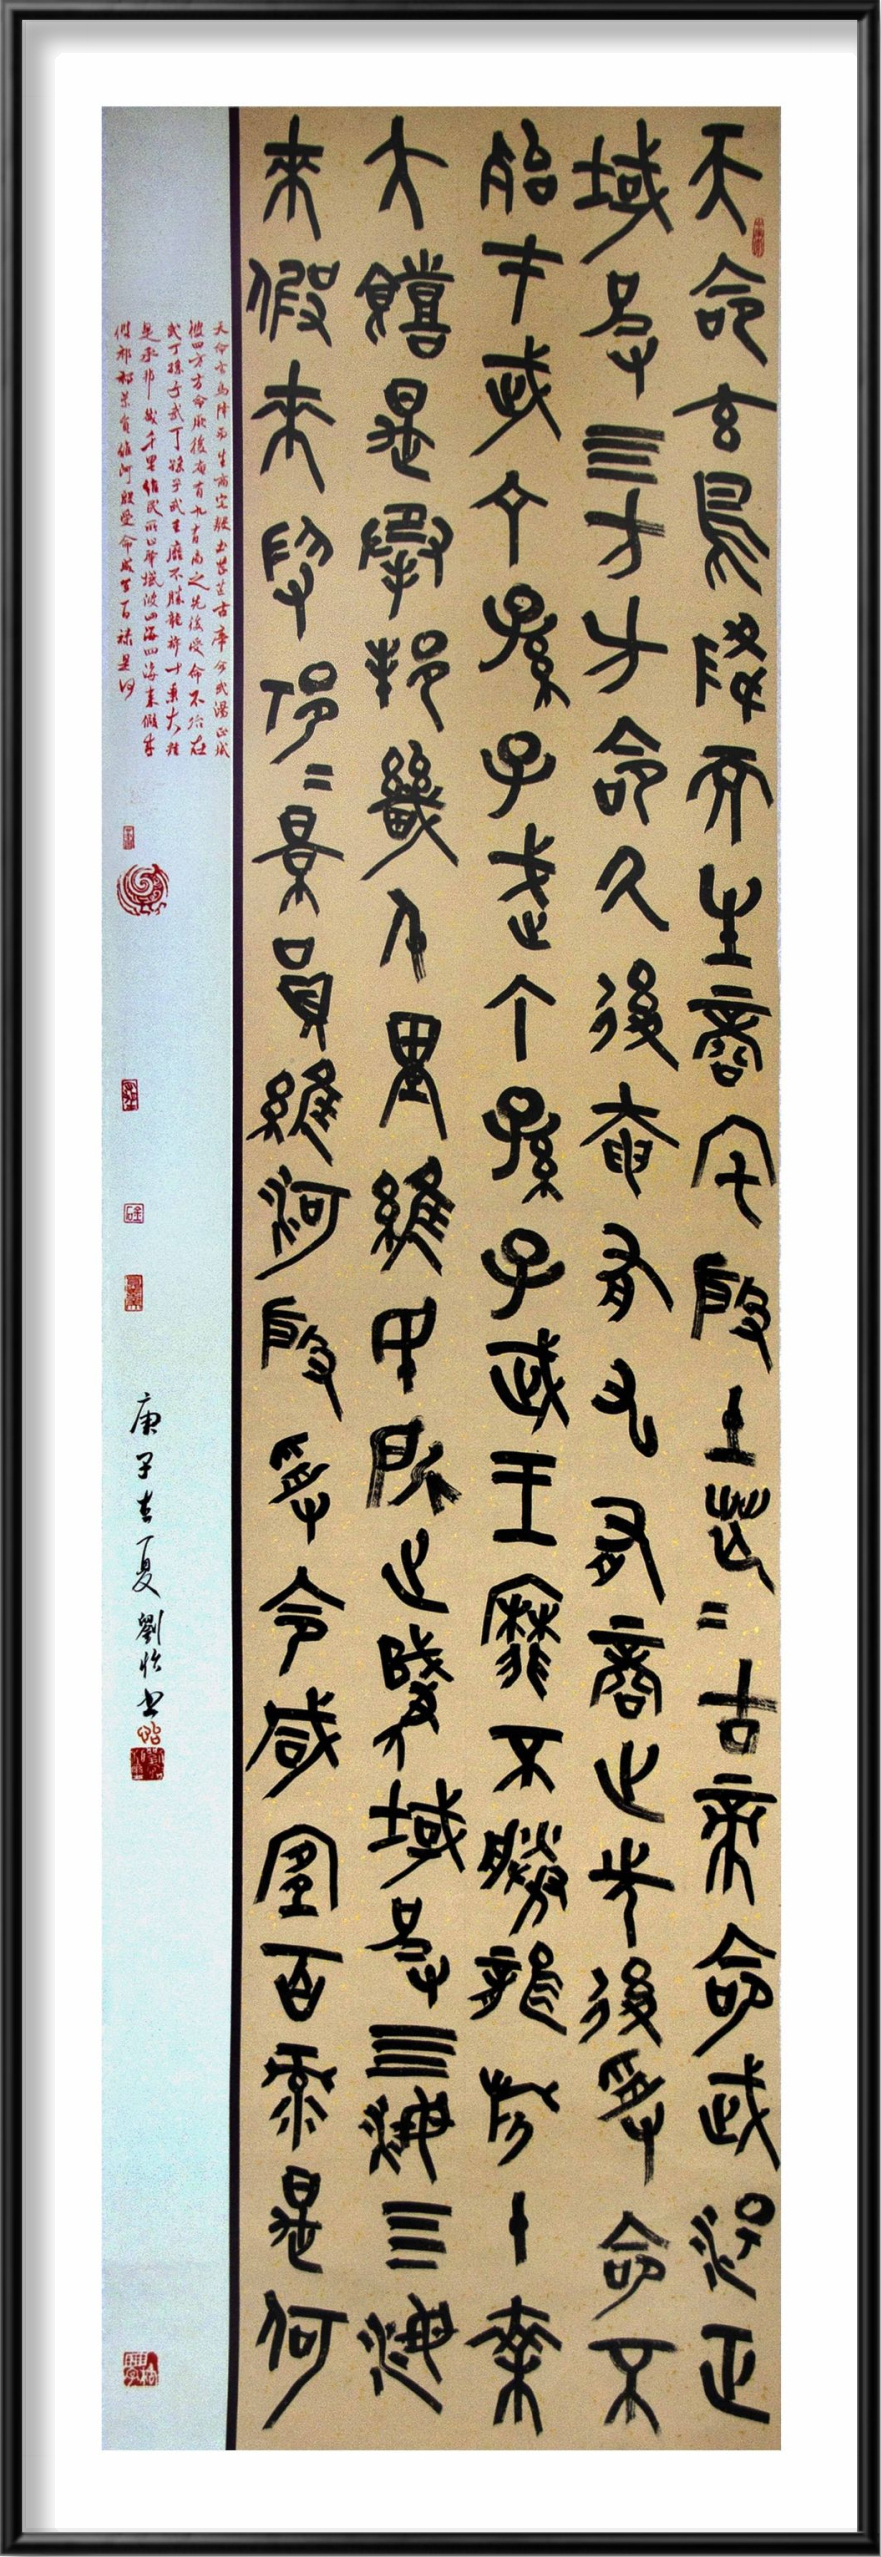 天命玄鳥降而生商宅殷土芒=古帝命武湯正
域彼四方方命厥後奄有九有商之先後受命不
殆在武丁孫子武丁孫子武王靡不勝龍旂十乘
大糦是承邦畿千里維民所止肇域彼四海四海
來假來假祁=景員維河殷受命咸宜百祿是何
天命玄鳥降而生商宅殷土芒芒古帝命武湯正域
彼四方方命厥後奄有九有商之先後受命不殆在
武丁孫子武丁孫子武王靡不勝龍旂十乘大糦
是承邦畿千里維民所止肇域彼四海四海來假來
假祁祁景員維河殷受命咸宜百祿是何
庚子夏劉怡書